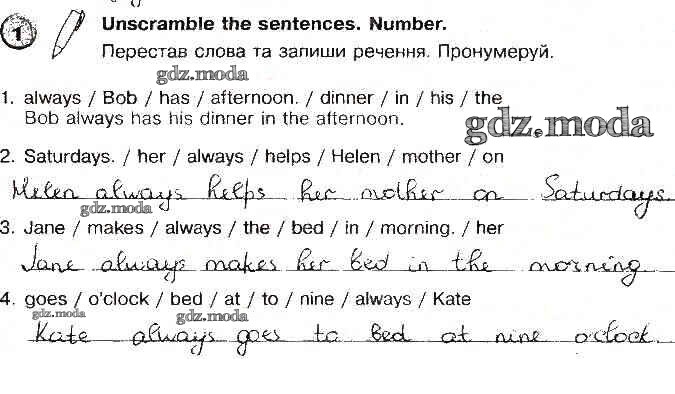 1 Unscramble the sentences. Number.
Перестав слова та запиши речення. Пронумеруй.
gdz.moda
1. always / Bob / has / afternoon. / dinner / in / his / the
Bob always has his dinner in the afternoon.
gdz.moda
2. Saturdays. / her / always / helps / Helen / mother / on
Helen always helps her mother on Saturdays.
gdz.moda
3. Jane / makes / always / the / bed / in / morning. / her
Jane always makes her bed in the morning
4. goes / o'clock / bed / at / to / nine / always / Kate
gdz.moda gdz.moda
Kate always goes to bed at nine o'clock.